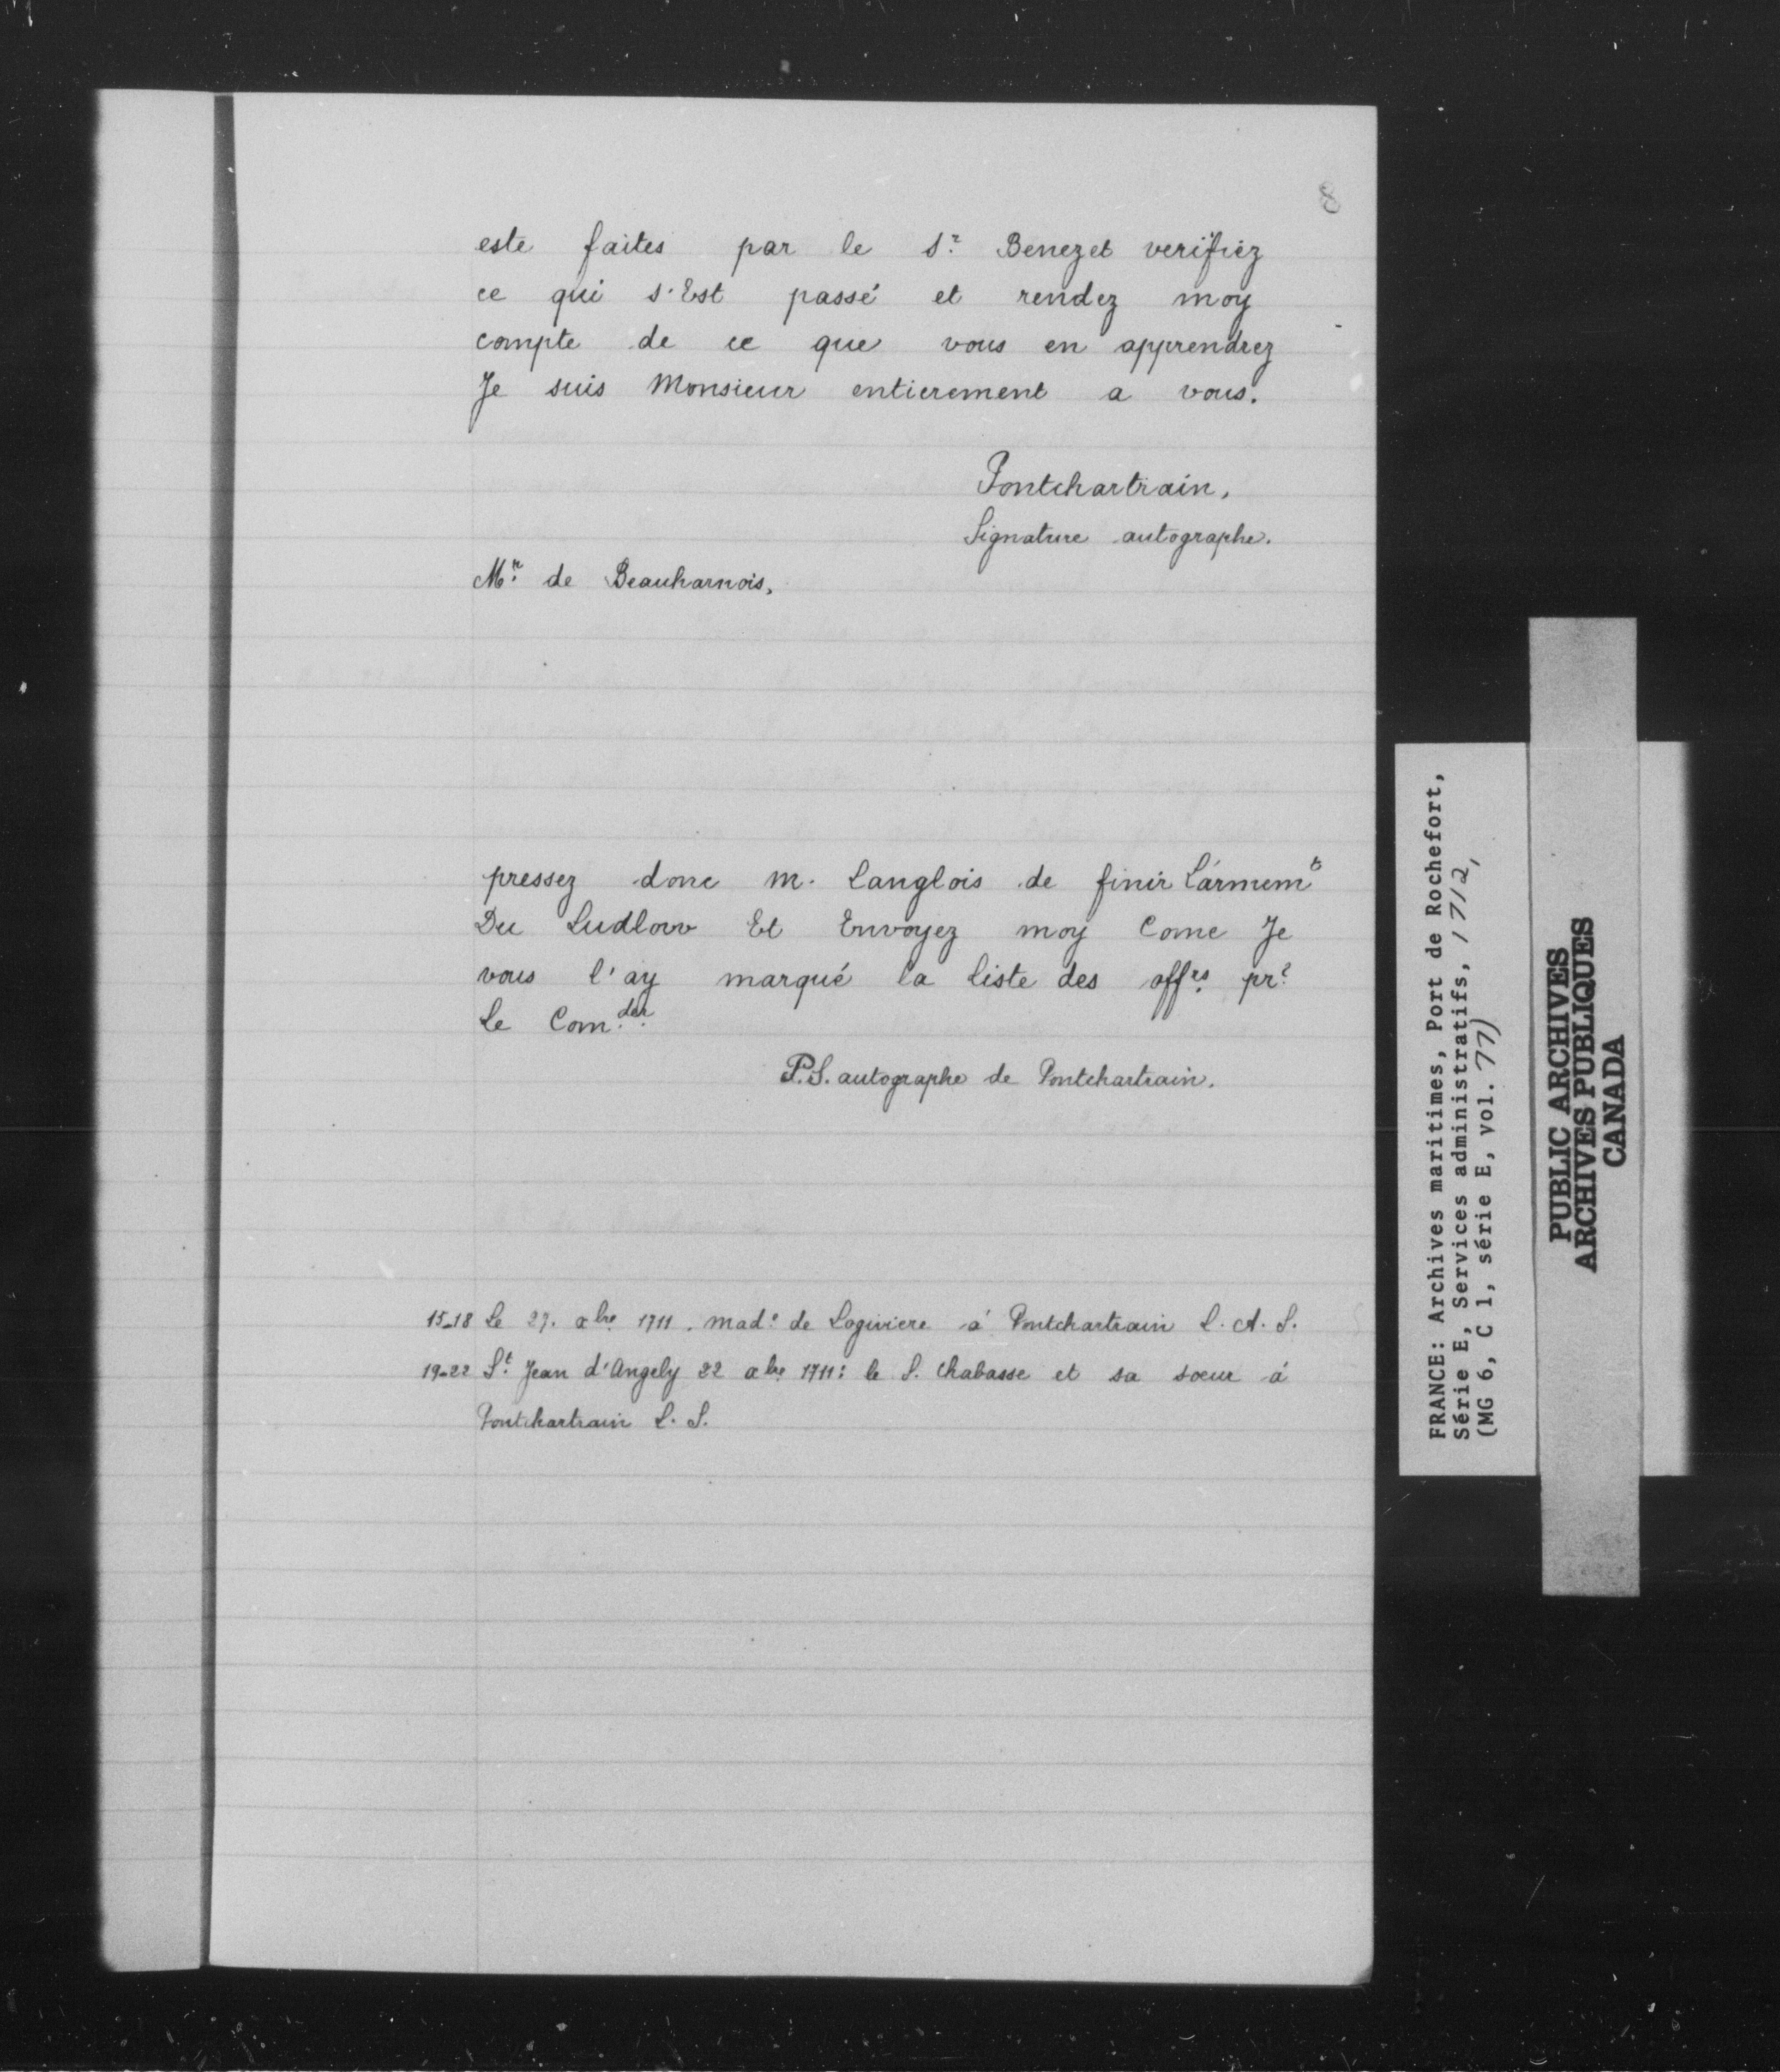 8
este faites par le Sr. Benezet verifiez
ce qui s'Est passé et rendez moy
compte de ce que vous en apprendrez
Je suis Monsieur entierement a vous.
Pontchartrain,
Signature autographe.
Mr. de Beauharnois,
pressez donc m. Langlois de finir L'armemt
Du Ludlow Et Envoyez moy Come Je
vous l'ay marqué la liste des offrs. pr.
Le Com.der.
P.S. autographe de Pontchartrain.
15-18 Le 27. xbre 1711. Made. de Logiviere à Pontchartrain L. A. S.
19-22 St. Jean d'Angely 22 xbre 1711: le S. Chabasse et sa soeur à
Pontchartrain L. S.
FRANCE: Archives maritimes, Port de Rochefort,
Série E, Services administratifs, 1712,
(MG 6, C 1, série E, vol. 77)
PUBLIC ARCHIVES
ARCHIVES PUBLIQUES
CANADA